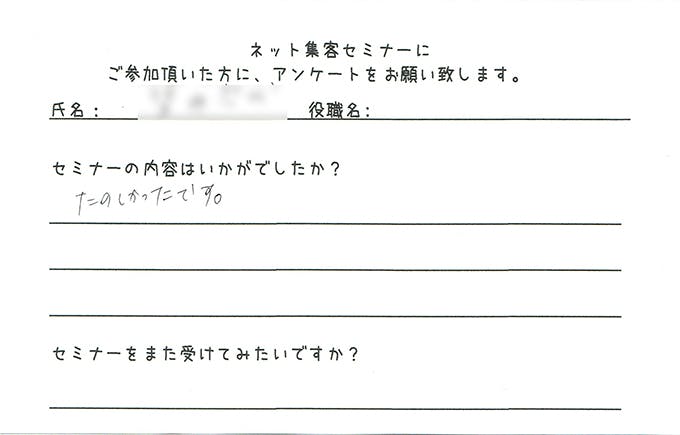 ネット集客セミナーに
ご参加頂いた方に、アンケートをお願い致します。
氏名： 役職名：
セミナーの内容はいかがでしたか？
たのしかったです。
セミナーをまた受けてみたいですか？